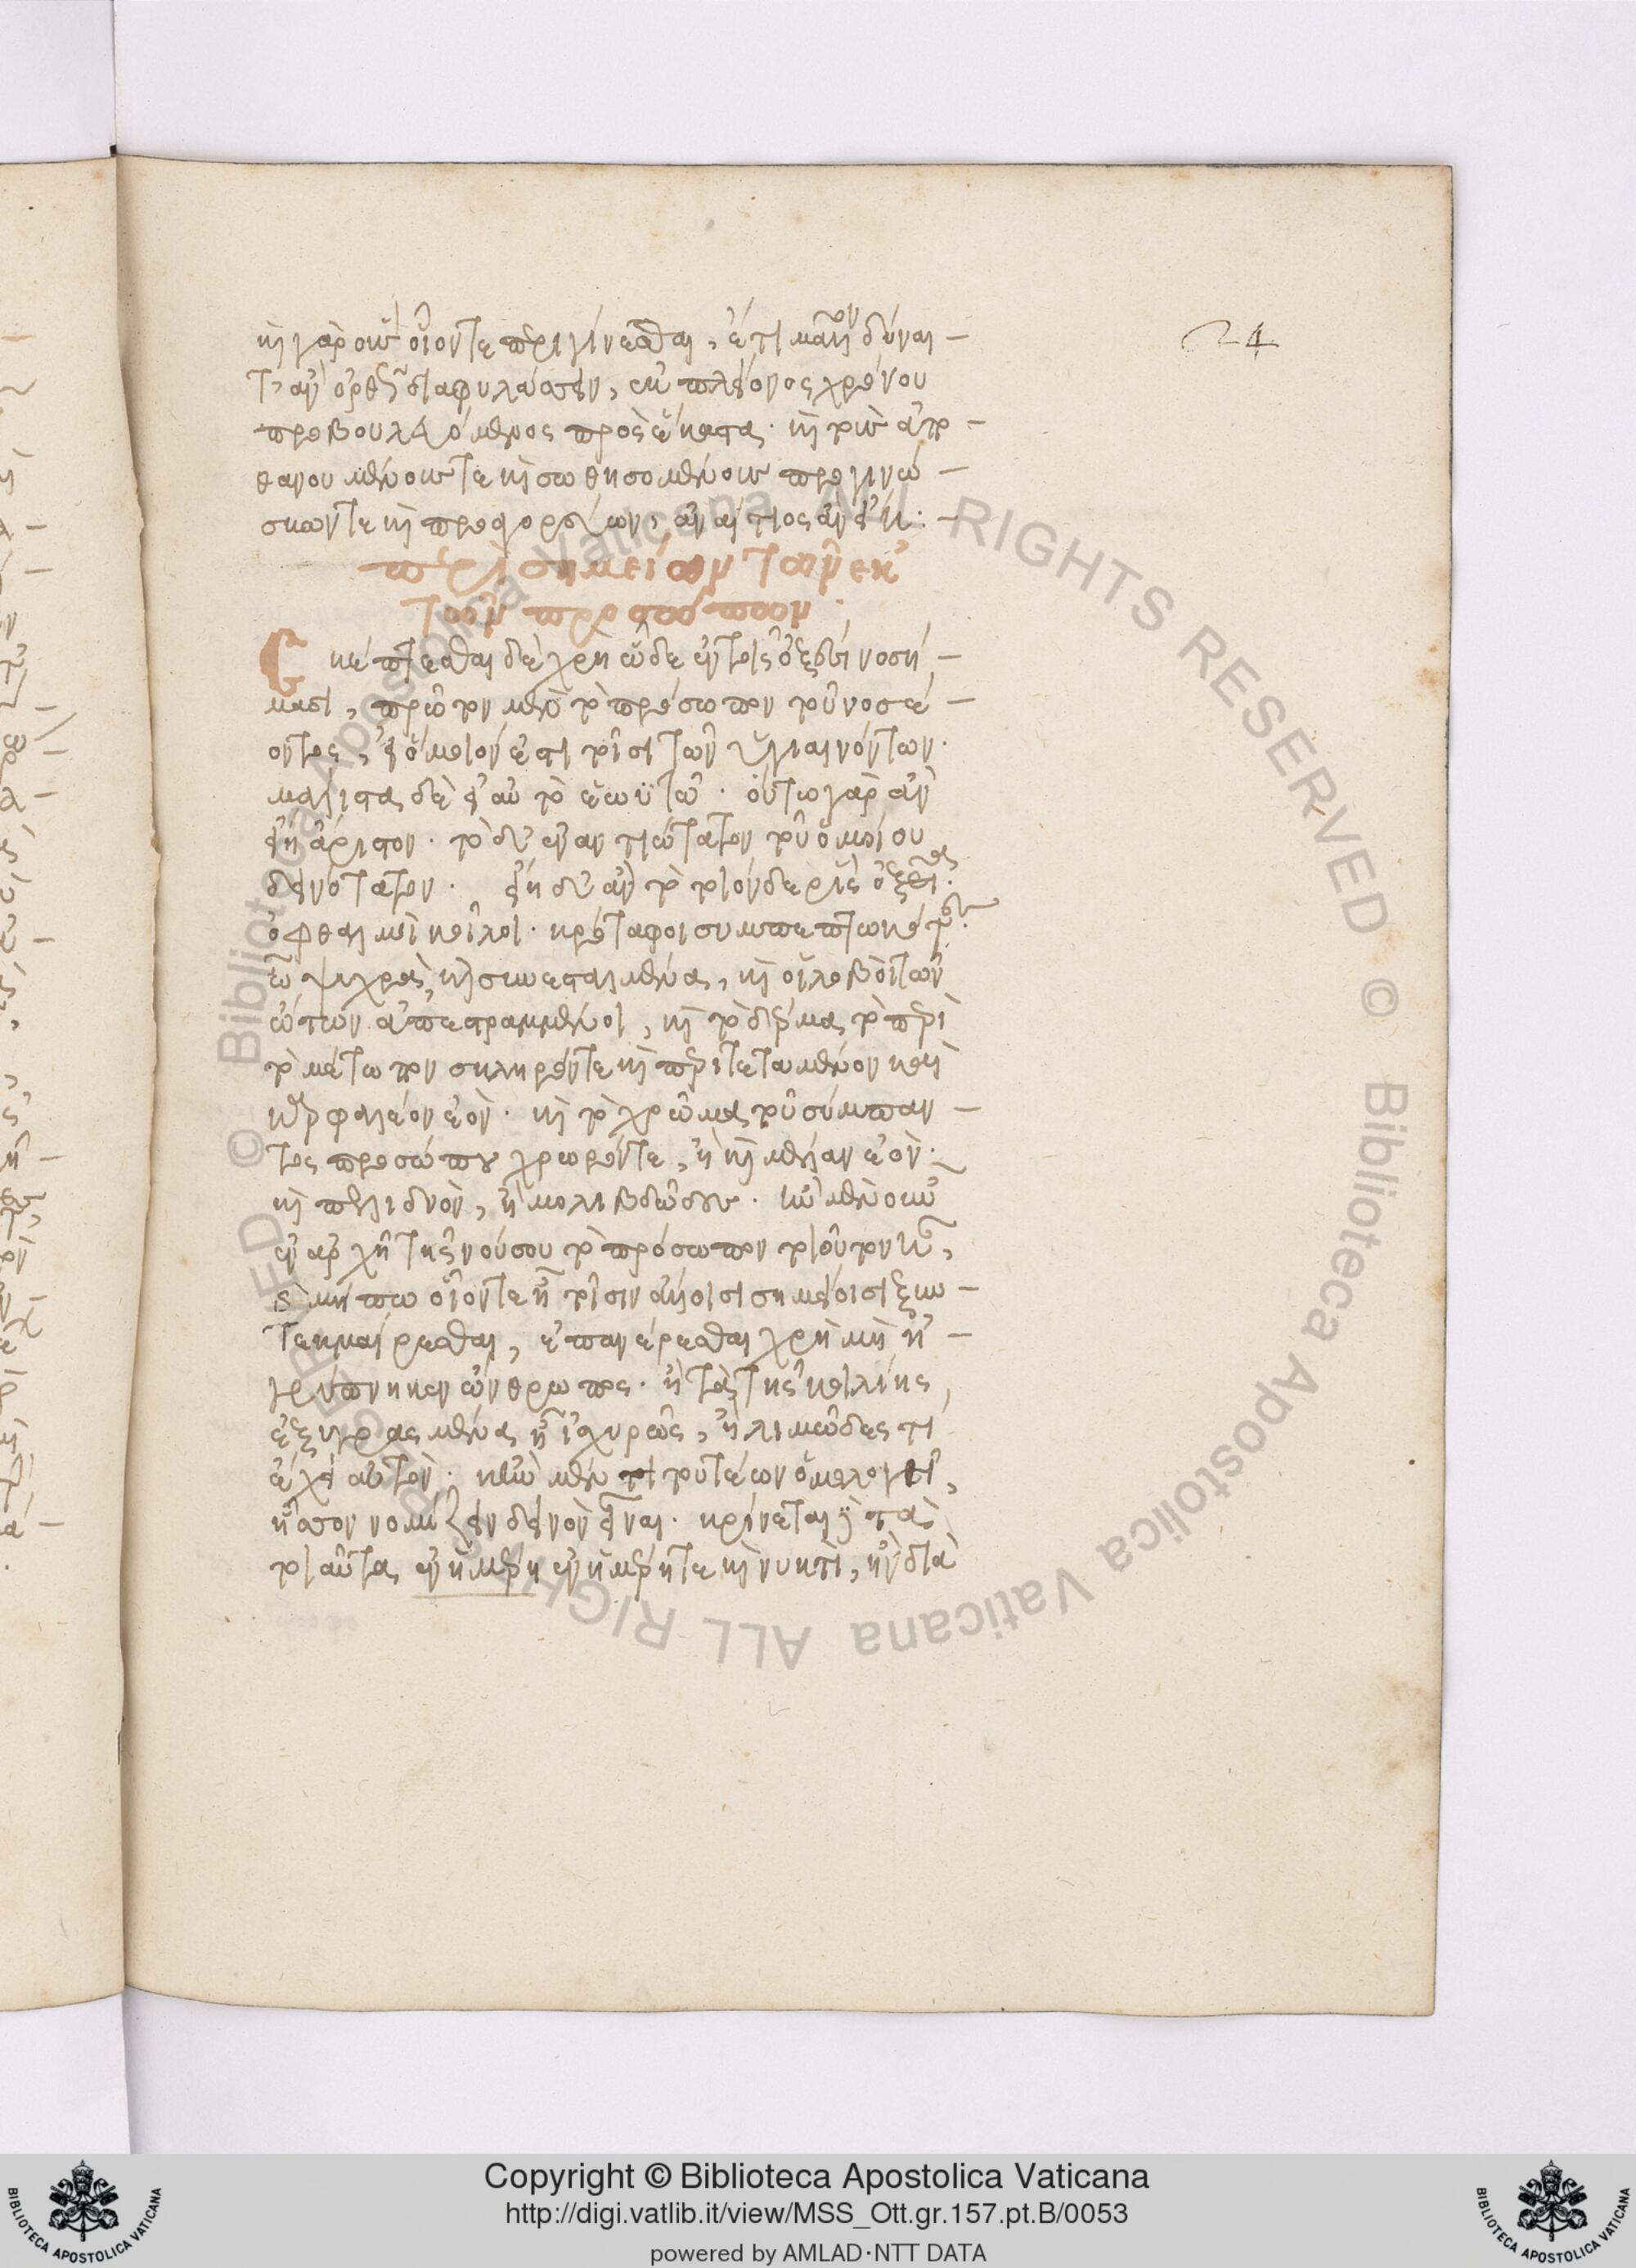 24
καὶ γὰρ οὓς οἷόν τε περιγίνεσθαι, ἔτι μᾶλλον δύναι-
τ' ἂν ὀρθῶς διαφυλάσσειν, ἐκ πλείονος χρόνου
προβουλευόμενος πρὸς ἕκαστα· καὶ τοὺς ἀπο-
θανουμένους τε καὶ σωθησομένους προγινώ-
σκων τε καὶ προαγορεύων, ἀναίτιος ἂν εἴη:-
περὶ σημείων τῶν ἐκ
τῶν προσώπων.
Σκέπτεσθαι δὲ χρὴ ὧδε ἐν τοῖς ὀξέσι νοσή-
μασι, πρῶτον μὲν τὸ πρόσωπον τοῦ νοσέ-
οντος, εἰ ὅμοιόν ἐστι τοῖσι τῶν ὑγιαινόντων·
μάλιστα δὲ εἰ αὐτὸ ἑωϋτῷ· οὕτω γὰρ ἂν
εἴη ἄριστον· τὸ δ' ἐναντιώτατον τοῦ ὁμοίου
δεινότατον· εἴη δ' ἂν τὸ τοιόνδε ῥὶς ὀξεῖα·
ὀφθαλμοὶ κοῖλοι· κρόταφοι συμπεπτωκότες·
ὦτα ψυχρὰ, καὶ συνεσταλμένα, καὶ οἱ λοβοὶ τῶν
ὤτων ἀπεστραμμένοι, καὶ τὸ δέρμα τὸ περὶ
τὸ μέτωπον σκληρόν τε καὶ περιτεταμένον καὶ
καρφαλέον ἐόν· καὶ τὸ χρῶμα τοῦ σύμπαν-
τος προσώπου χλωρόν τε, ἢ καὶ μέλαν ἐόν·
καὶ πελιδνὸν, ἢ μολιβδῶδες· ἢν μὲν οὖν
ἐν ἀρχῇ τῆς νούσου τὸ πρόσωπον τοιοῦτον ᾖ,
καὶ μήπω οἷόν τε ᾖ τοῖσιν ἄλλοισι σημείοισι ξυν-
τεκμαίρεσθαι, ἐπανέρεσθαι χρὴ μὴ ἠ-
γρύπνηκεν ὥνθρωπος· ἢ τὰ τῆς κοιλίης
ἐξυγρασμένα ᾖ ἰσχυρῶς, ἢ λιμῶδές τι
ἔχει αὐτόν· κἢν μέν τι τουτέων ὁμολογῇ,
ἧσσον νομίζειν δεινὸν εἶναι· κρίνεται δὲ τὰ
τοιαῦτα ἐν ἡμέρῃ ἐν ἡμέρῃ τε καὶ νυκτὶ, ἢν διὰ
Copyright © Biblioteca Apostolica Vaticana
http://digi.vatlib.it/view/MSS_Ott.gr.157.pt.B/0053
powered by AMLAD·NTT DATA